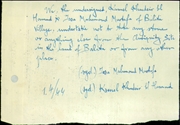 We the undersigned, Kamel
Hamad & Issa Mohammad Mustafa of Balita
Village, undertake not to take any stones
or anything else from the Antiquity Site
in the land of Balita or from any other
place.
(sgd) Issa Mohamad Mustafa
(sgd) Kamel